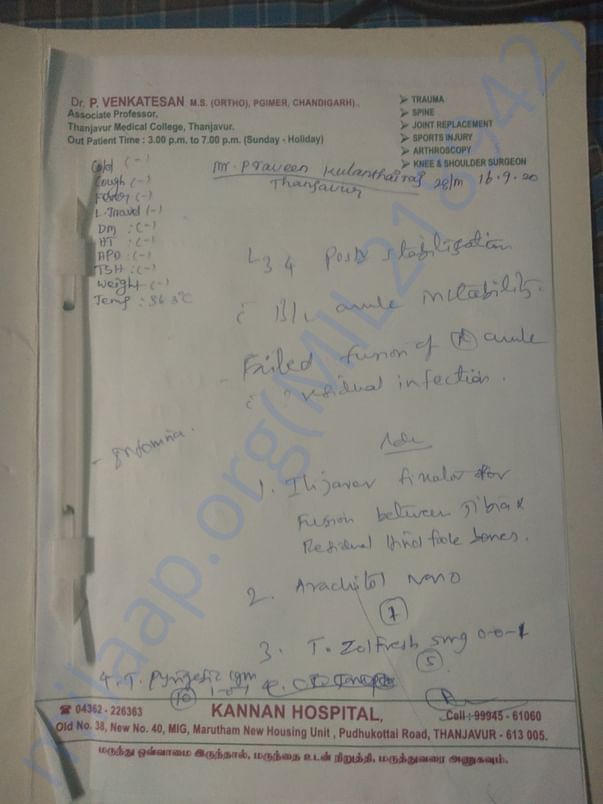 Dr. P. VENKATESAN M.S. (ORTHO), PGIMER, CHANDIGARH).,
Associate Professor,
Thanjavur Medical College, Thanjavur.
Out Patient Time : 3.00 p.m. to 7.00 p.m. (Sunday - Holiday)
➢ TRAUMA
➢ SPINE
➢ JOINT REPLACEMENT
➢ SPORTS INJURY
➢ ARTHROSCOPY
➢ KNEE & SHOULDER SURGEON
Mr. Praveen Kulanthairaj 28/m 16.9.20
Thanjavur
Cold (-)
Cough (-)
Fever (-)
L. Travel (-)
DM : (-)
HT : (-)
APD : (-)
TSH : (-)
Weight (-)
Temp : 36.3°C
L34 Post stabilization
c B/L ankle instability.
- Failed fusion of (R) ankle
c ? residual infection.
- Insomnia.
Adv
1. Ilizarov fixator for
Fusion between Tibia &
Residual hind foot bones.
2. Arachitol Nano
3. T. Zolfresh 5mg 0-0-1
5
4. T. Pyrigesic 1gm
10 1-0-1
KANNAN HOSPITAL,
☎ 04362 - 226363
Cell : 99945 - 61060
Old No. 38, New No. 40, MIG, Marutham New Housing Unit , Pudhukottai Road, THANJAVUR - 613 005.
மருந்து ஒவ்வாமை இருந்தால், மருந்தை உடன் நிறுத்தி, மருத்துவரை அணுகவும்.
milaap.org(MIL2189421